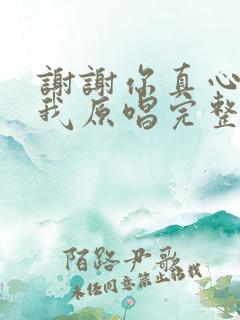 謝謝你真心
我原唱完整
陌路尹歌
未经同意禁止转载